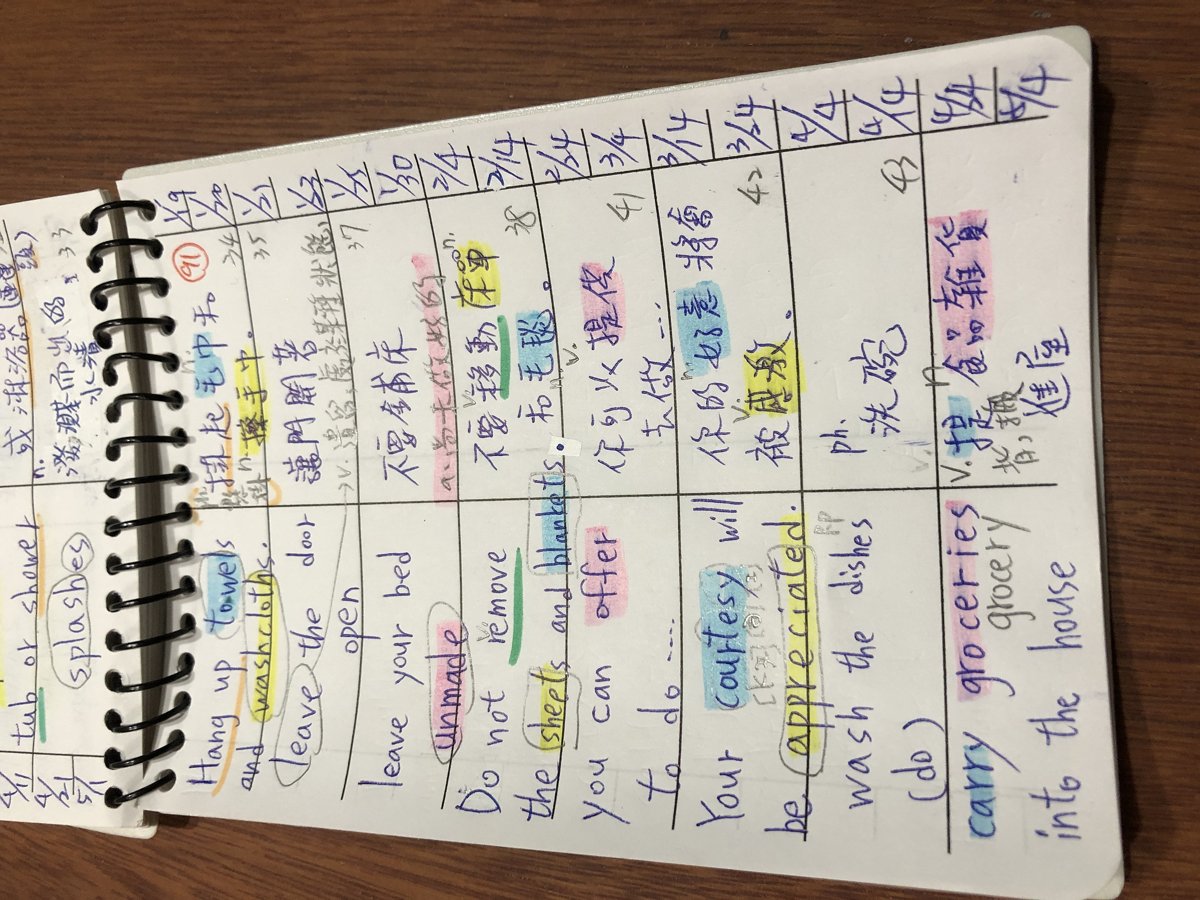 tub or showers
splashes
4/1
4/21
5/1
或淋浴器
n. 潑濺而出的
水漬
33
Hang up towels
and washcloths.
掛起毛巾和
擦手巾.
91
34
leave the door
open
讓門開著
35
v. 遺留,處某種狀態
leave your bed
unmade
不要鋪床
37
a. 尚未做好的
Do not remove
the sheets and blankets.
不要移動床單
和毛毯。
38
you can offer
to do ....
你可以提供
去做....
41
Your courtesy will
be appreciated.
你的好意將會
被感激.
42
wash the dishes
(do)
ph.
洗碗
43
carry groceries
grocery
into the house
v. 提食品雜貨
進屋
1/19
1/20
1/21
1/23
1/25
1/30
2/4
2/14
2/24
3/4
3/14
3/24
4/4
4/14
4/24
5/4